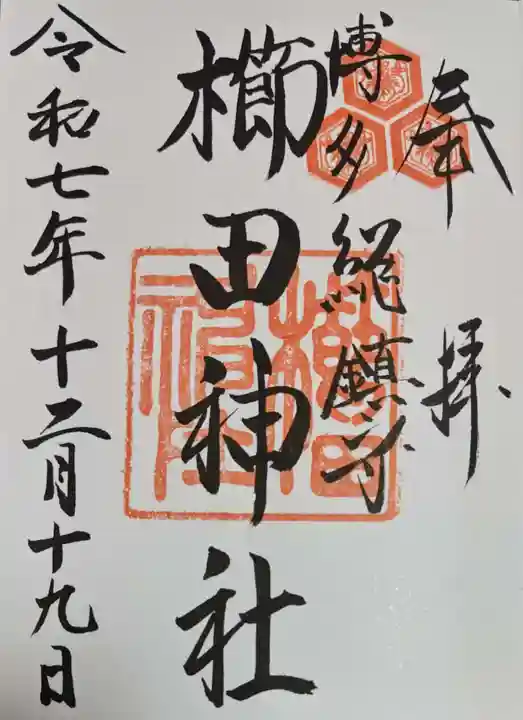 奉拝
博多総鎮守
櫛田神社
令和七年十二月十九日